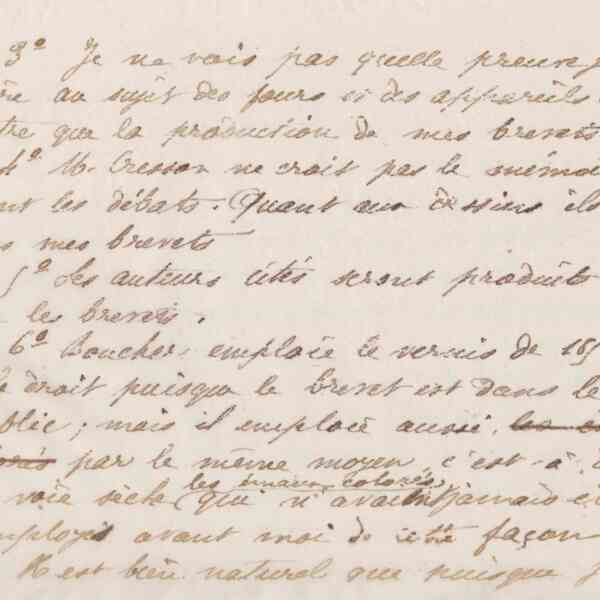 3º Je ne vois pas quelle preuve
au sujet des fours et des appareils
tre que la production de mes brevets
4º M. Cresson ne croit pas le mémoi
nt les débats. Quant aux dessins ils
s mes brevets
5º Les auteurs cités seront produits
les brevets.
6º Boucher emploie le vernis de 185
e droit puisque le brevet est dans le
blic ; mais il emploie aussi
par le même moyen, c'est-à-
les émaux colorés
voie sèche qui n'avaient jamais é
mployés avant moi de cette façon
Il est bien naturel que puisque j